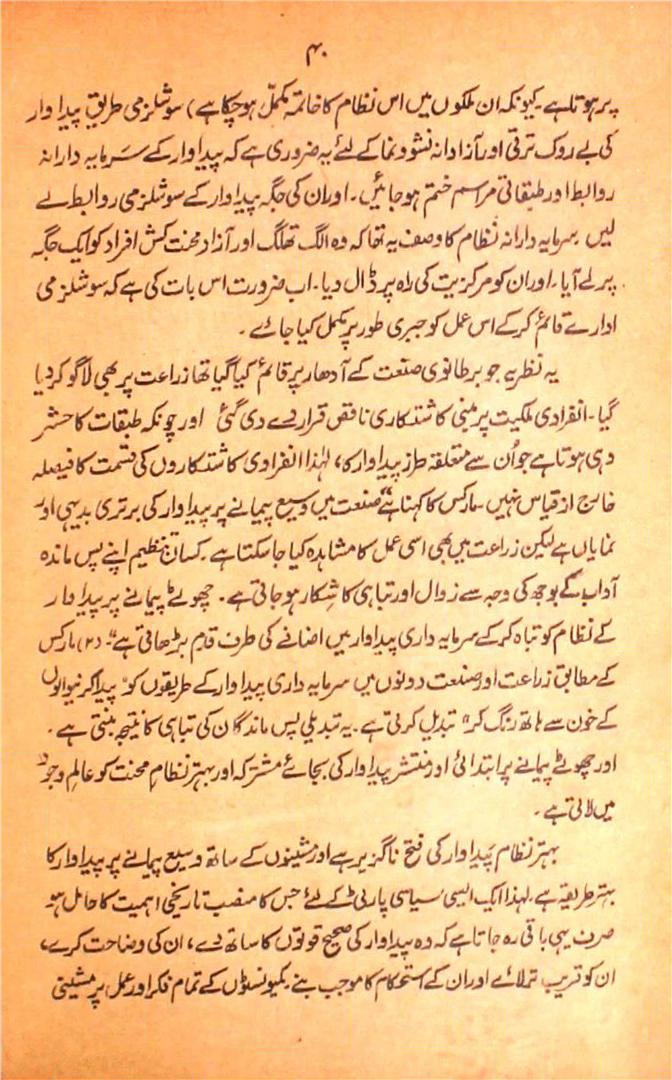 ۴۰
پر ہوتا ہے۔ کیونکہ ان ملکوں میں اس نظام کا خاتمہ مکمل ہو چکا ہے) سوشلزمی طریق پیداوار
کی بے روک ترقی اور آزادانہ نشوونما کے لئے یہ ضروری ہے کہ پیداوار کے سرمایہ دارانہ
روابط اور طبقاتی مراسم ختم ہو جائیں۔ اور ان کی جگہ پیداوار کے سوشلزمی روابط لے
لیں۔ سرمایہ دارانہ نظام کا وصف یہ تھا کہ وہ الگ تھلگ اور آزاد محنت کش افراد کو ایک جگہ
پر لے آیا۔ اور ان کو مرکزیت کی راہ پر ڈال دیا۔ اب ضرورت اس بات کی ہے کہ سوشلزمی
ادارے قائم کر کے اس عمل کو جبری طور پر مکمل کیا جائے۔
یہ نظریہ جو برطانوی صنعت کے آدھار پر قائم کیا گیا تھا زراعت پر بھی لاگو کر دیا
گیا۔ انفرادی ملکیت پر مبنی کاشتکاری ناقص قرار دے دی گئی اور چونکہ طبقات کا حشر
وہی ہوتا ہے جو اُن سے متعلقہ طرز پیداوار کا، لہٰذا انفرادی کاشتکاروں کی قسمت کا فیصلہ
خارج از قیاس نہیں۔ مارکس کا کہنا ہے "صنعت میں وسیع پیمانے پر پیداوار کی برتری بدیہی اور
نمایاں ہے لیکن زراعت میں بھی اسی عمل کا مشاہدہ کیا جا سکتا ہے۔ کسان تنظیم اپنے پس ماندہ
آداب کے بوجھ کی وجہ سے زوال اور تباہی کا شکار ہو جاتی ہے۔ چھوٹے پیمانے پر پیداوار
کے نظام کو تباہ کر کے سرمایہ داری پیداوار میں اضافے کی طرف قدم بڑھاتی ہے"۔ (۲) مارکس
کے مطابق زراعت اور صنعت دونوں میں سرمایہ داری پیداوار کے طریقوں کو "پیدا کرنیوالوں
کے خون سے ہاتھ رنگ کر" تبدیل کرتی ہے۔ یہ تبدیلی پس ماندگان کی تباہی کا نتیجہ بنتی ہے۔
اور چھوٹے پیمانے پر ابتدائی اور منتشر پیداوار کی بجائے مشترکہ اور بہتر نظامِ محنت کو عالمِ وجود
میں لاتی ہے۔
بہتر نظام پیداوار کی فتح ناگزیر ہے اور مشینوں کے ساتھ وسیع پیمانے پر پیداوار کا
بہتر طریقہ ہے۔ لہٰذا ایک ایسی سیاسی پارٹی کے لئے جس کا منصب تاریخی اہمیت کا حامل ہو
صرف یہی باقی رہ جاتا ہے کہ وہ پیداوار کی صحیح قوتوں کا ساتھ دے، ان کی وضاحت کرے،
ان کو قریب تر لائے اور ان کے استحکام کا موجب بنے۔ کمیونسٹوں کے تمام فکر اور عمل پر مشینی